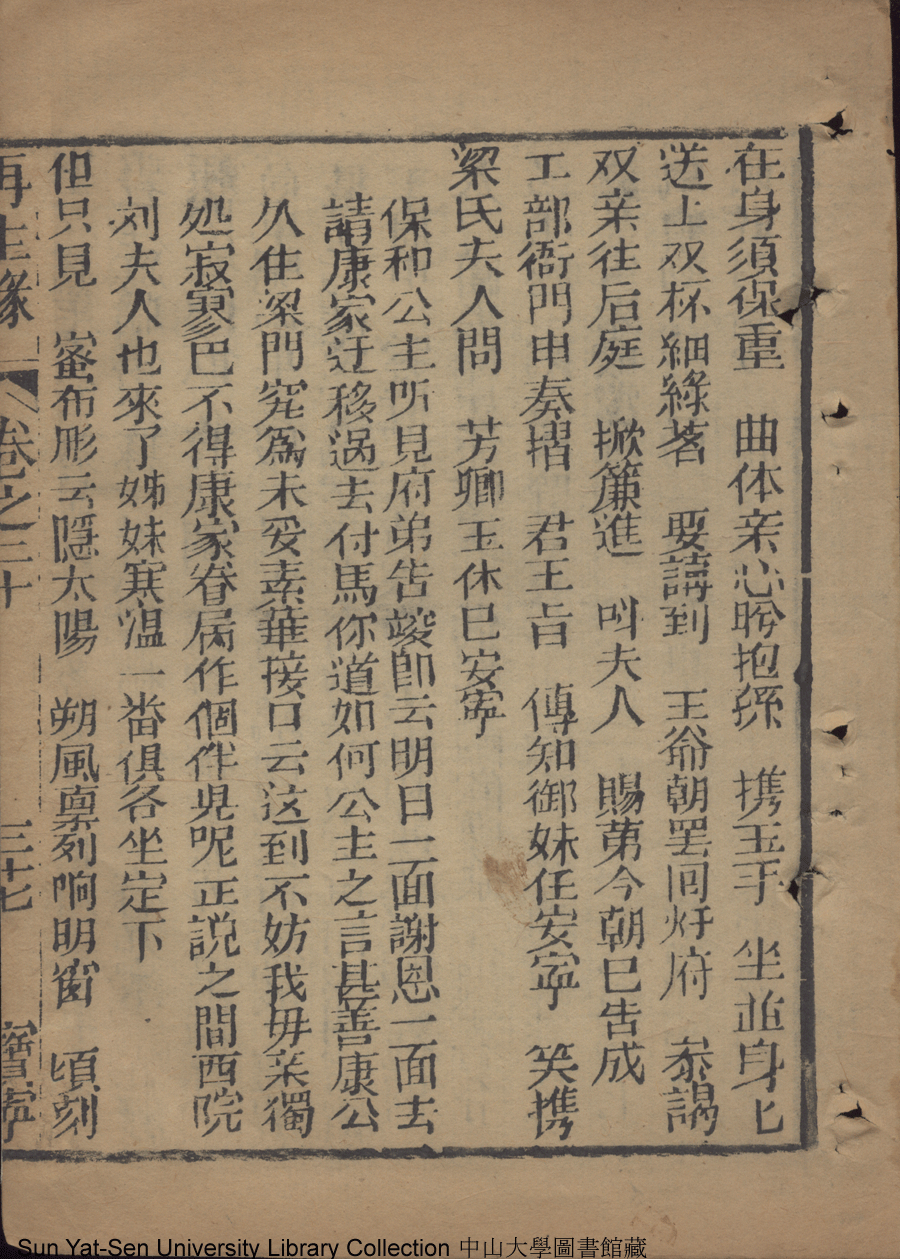 在身須保重　曲体亲心聆抱孫　携玉手　坐並身匕
送上双杯細綠茗　要請到　王爺朝罢囘圩府　叅謁
双亲往后庭　掀簾進　叫夫人　賜第今朝已告成
工部衙門申奏摺　君王旨　傳知御妹任安寧　笑携
梁氏夫人問　芳卿玉体已安寧
保和公主听見府弟告竣卽云明日一面謝恩一面去
請康家迁移過去付馬你道如何公主之言甚善康公
久住梁門究爲未妥素華接口云这到不妨我毋亲獨
処寂寥巴不得康家眷屬作個伴児呢正説之間西院
刘夫人也來了姊妹寒溫一畨俱各坐定下
但只見　密布彤云隱太陽　朔風凛列响明窗　頃刻
再生緣　卷之三十　三十七　寳寧
Sun Yat-Sen University Library Collection 中山大學圖書館藏